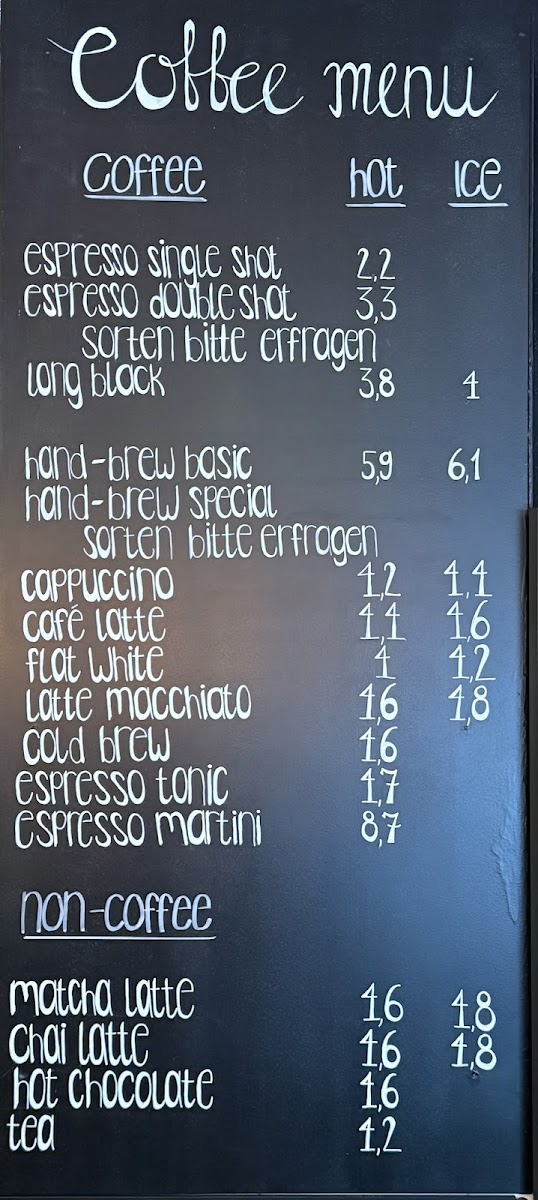 Coffee menu
coffee hot Ice
espresso single shot 2,2
espresso double shot 3,3
sorten bitte erfragen
long black 3,8 4
hand-brew basic 5,9 6,1
hand-brew special
sorten bitte erfragen
cappuccino 4,2 4,4
café latte 4,4 4,6
flat white 4 4,2
latte macchiato 4,6 4,8
cold brew 4,6
espresso tonic 4,7
espresso martini 8,7
non-coffee
matcha latte 4,6 4,8
chai latte 4,6 4,8
hot chocolate 4,6
tea 4,2